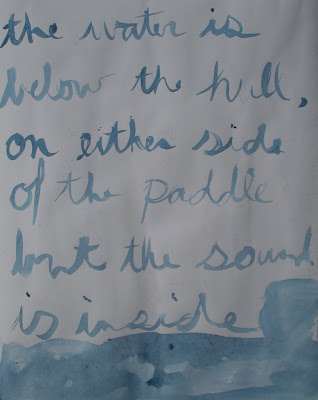 the water is
below the hull,
on either side
of the paddle
but the sound
is inside